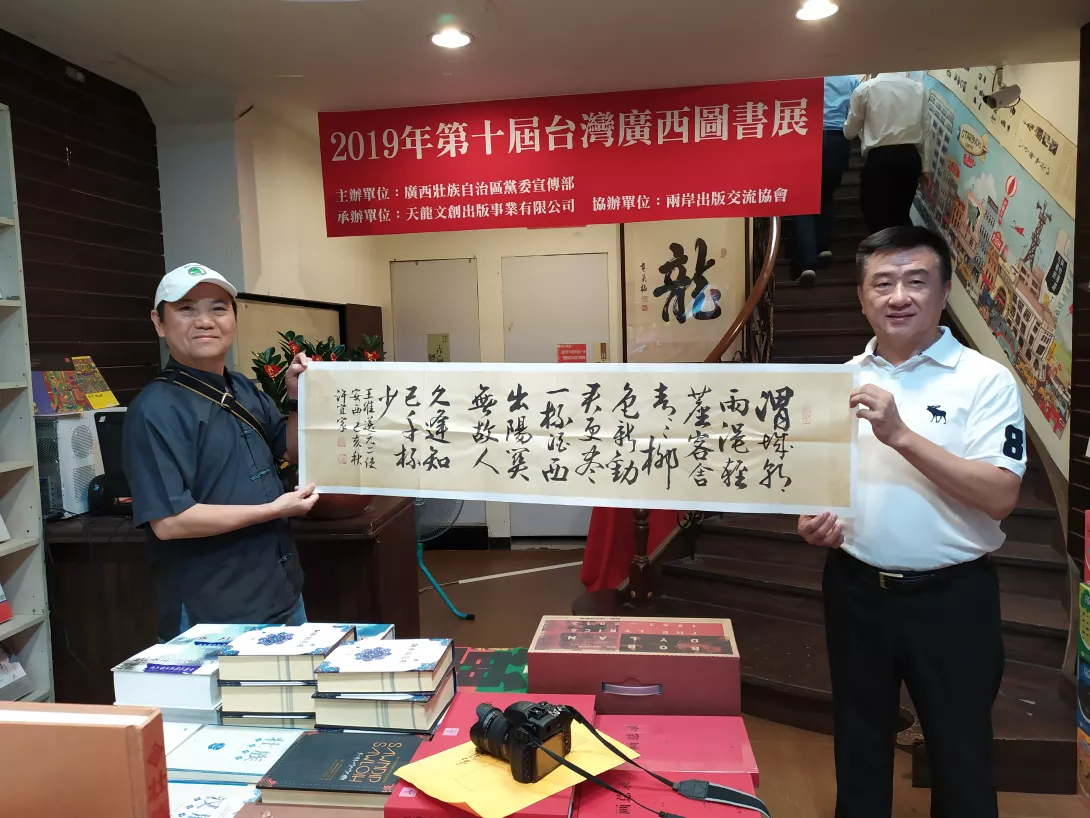 2019年第十屆台灣廣西圖書展
主辦單位：廣西壯族自治區黨委宣傳部
承辦單位：天龍文創出版事業有限公司 協辦單位：兩岸出版交流協會
龍
渭城朝
雨浥輕
塵客舍
青々柳
色新勸
君更尽
一杯酒西
出陽関
無故人
久逢知
己千杯
少
王維送元二使
安西 己亥秋
許宜
8
BOB
DYLAN
THE LYRICS
1961-2012